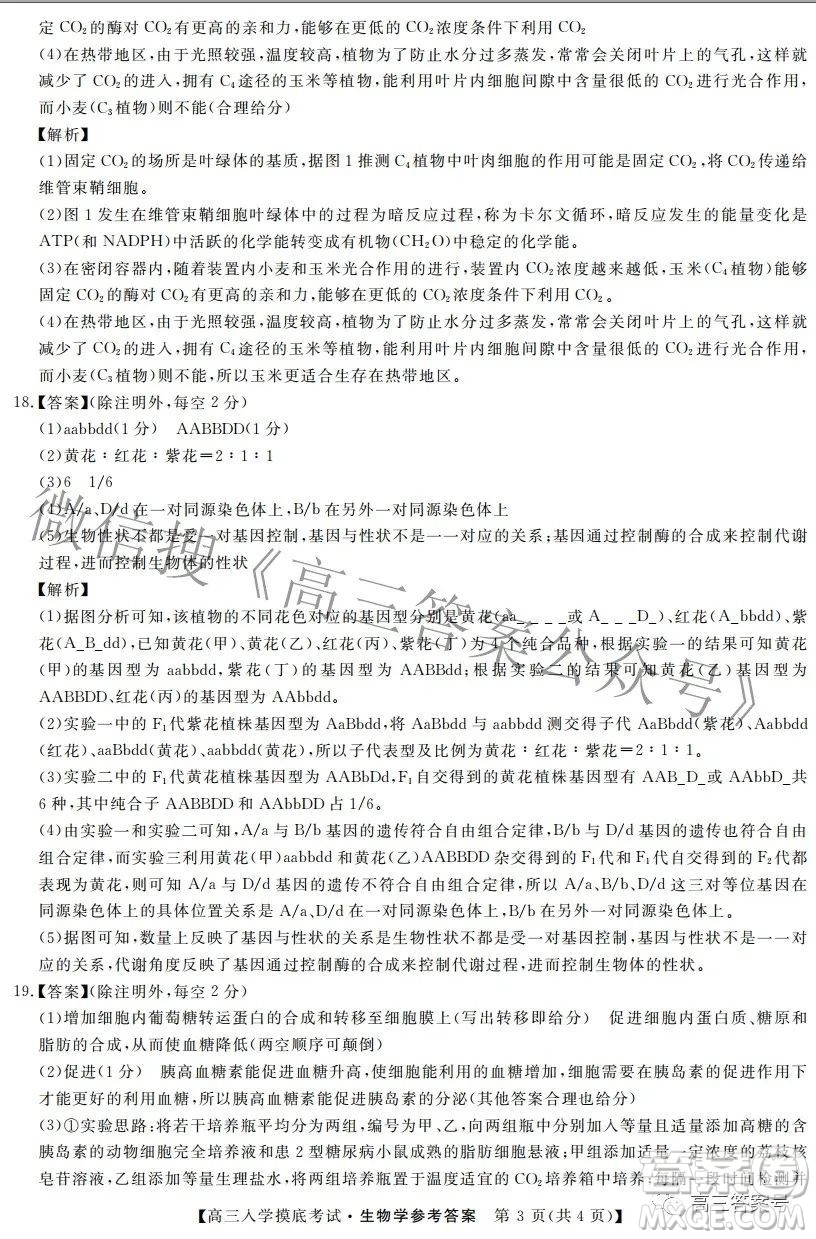 定 CO₂的酶对 CO₂有更高的亲和力,能够在更低的 CO₂浓度条件下利用 CO₂
(4)在热带地区,由于光照较强,温度较高,植物为了防止水分过多蒸发,常常会关闭叶片上的气孔,这样就
减少了 CO₂的进入,拥有 C₄途径的玉米等植物,能利用叶片内细胞间隙中含量很低的 CO₂进行光合作用,
而小麦(C₃植物)则不能(合理给分)
【解析】
(1)固定 CO₂的场所是叶绿体的基质,据图 1 推测 C₄植物中叶肉细胞的作用可能是固定 CO₂,将 CO₂传递给
维管束鞘细胞。
(2)图 1 发生在维管束鞘细胞叶绿体中的过程为暗反应过程,称为卡尔文循环,暗反应发生的能量变化是
ATP(和 NADPH)中活跃的化学能转变成有机物(CH₂O)中稳定的化学能。
(3)在密闭容器内,随着装置内小麦和玉米光合作用的进行,装置内 CO₂浓度越来越低,玉米(C₄植物)能够
固定 CO₂的酶对 CO₂有更高的亲和力,能够在更低的 CO₂浓度条件下利用 CO₂。
(4)在热带地区,由于光照较强,温度较高,植物为了防止水分过多蒸发,常常会关闭叶片上的气孔,这样就
减少了 CO₂的进入,拥有 C₄途径的玉米等植物,能利用叶片内细胞间隙中含量很低的 CO₂进行光合作用,
而小麦(C₃植物)则不能,所以玉米更适合生存在热带地区。
18.【答案】(除注明外,每空 2 分)
(1)aabbdd(1 分) AABBDD(1 分)
(2)黄花∶红花∶紫花=2∶1∶1
(3)6 1/6
(4)A/a、D/d 在一对同源染色体上,B/b 在另外一对同源染色体上
(5)生物性状不都是受一对基因控制,基因与性状不是一一对应的关系;基因通过控制酶的合成来控制代谢
过程,进而控制生物体的性状
【解析】
(1)据图分析可知,该植物的不同花色对应的基因型分别是黄花(aa_ _ _ _或 A_ _ _D_)、红花(A_bbdd)、紫
花(A_B_dd),已知黄花(甲)、黄花(乙)、红花(丙)、紫花(丁)为 4 个纯合品种,根据实验一的结果可知黄花
(甲)的基因型为 aabbdd,紫花(丁)的基因型为 AABBdd;根据实验二的结果可知黄花(乙)基因型为
AABBDD、红花(丙)的基因型为 AAbbdd。
(2)实验一中的 F₁代紫花植株基因型为 AaBbdd,将 AaBbdd 与 aabbdd 测交得子代 AaBbdd(紫花)、Aabbdd
(红花)、aaBbdd(黄花)、aabbdd(黄花),所以子代表型及比例为黄花∶红花∶紫花=2∶1∶1。
(3)实验二中的 F₁代黄花植株基因型为 AABbDd,F₁自交得到的黄花植株基因型有 AAB_D_或 AAbbD_共
6 种,其中纯合子 AABBDD 和 AAbbDD 占 1/6。
(4)由实验一和实验二可知,A/a 与 B/b 基因的遗传符合自由组合定律,B/b 与 D/d 基因的遗传也符合自由
组合定律,而实验三利用黄花(甲)aabbdd 和黄花(乙)AABBDD 杂交得到的 F₁代和 F₁代自交得到的 F₂代都
表现为黄花,则可知 A/a 与 D/d 基因的遗传不符合自由组合定律,所以 A/a、B/b、D/d 这三对等位基因在
同源染色体上的具体位置关系是 A/a、D/d 在一对同源染色体上,B/b 在另外一对同源染色体上。
(5)据图可知,数量上反映了基因与性状的关系是生物性状不都是受一对基因控制,基因与性状不是一一对
应的关系,代谢角度反映了基因通过控制酶的合成来控制代谢过程,进而控制生物体的性状。
19.【答案】(除注明外,每空 2 分)
(1)增加细胞内葡萄糖转运蛋白的合成和转移至细胞膜上(写出转移即给分) 促进细胞内蛋白质、糖原和
脂肪的合成,从而使血糖降低(两空顺序可颠倒)
(2)促进(1 分) 胰高血糖素能促进血糖升高,使细胞能利用的血糖增加,细胞需要在胰岛素的调节作用下
才能更好的利用血糖,所以胰高血糖素能促进胰岛素的分泌(其他答案合理也给分)
(3)①实验思路:将若干培养瓶平均分为两组,编号为甲、乙,向两组瓶中分别加入等量且适量添加高糖的含
胰岛素的动物细胞完全培养液和患 2 型糖尿病小鼠成熟的脂肪细胞悬液;甲组添加适量一定浓度的荔枝核
皂苷溶液,乙组添加等量生理盐水,将两组培养瓶置于适宜的 CO₂培养箱中培养;每一段时间检测并
【高三入学摸底考试·生物学参考答案 第 3 页(共 4 页)】
微信搜《高三答案公众号》
高三答案号